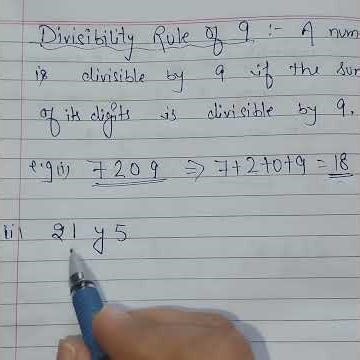 Divisibility Rule of 9 :- A num
is divisible by 9 if the sum
of its digits is divisible by 9.
e.g (i) 7209 ⇒ 7+2+0+9 = 18
(ii) 21y5